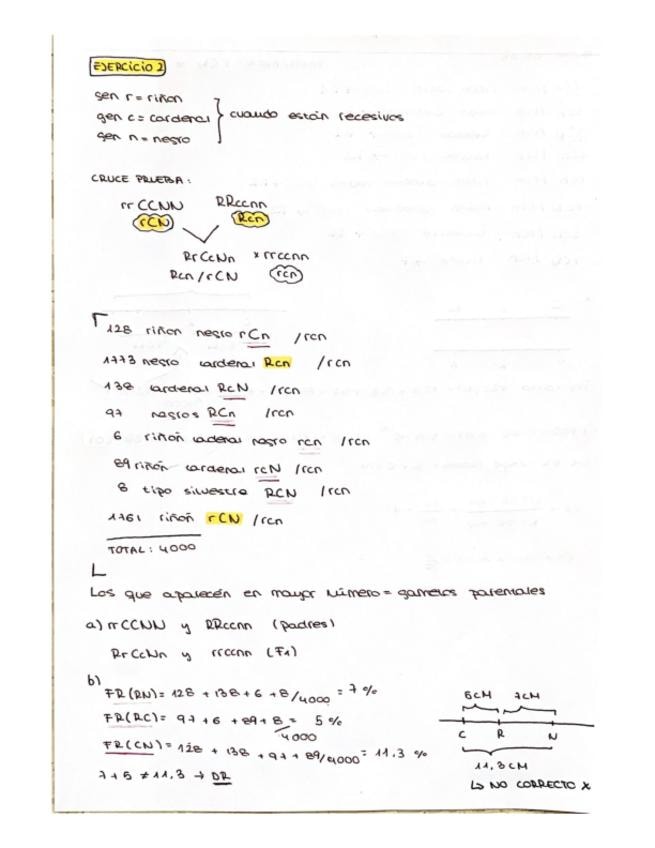 EJERCICIO 2
gen r = riñon
gen c = cardenal } cuando están recesivos
gen n = negro
CRUCE PRUEBA:
rr CCNN RRccnn
rCN Rcn
RrCcNn x rrccnn
Rcn/rCN rcn
128 riñon negro rCn /rcn
1773 negro cardenal Rcn /rcn
138 cardenal RcN /rcn
97 negros RCn /rcn
6 riñón cadenal negro rcn /rcn
89 riñón cardenal rcN /rcn
8 tipo silvestre RCN /rcn
1761 riñon rCN /rcn
TOTAL: 4000
Los que aparecén en mayor número = gametos parentales
a) rrCCNN y RRccnn (padres)
RrCcNn y rrccnn (F1)
b)
FR(RN) = 128 + 138 + 6 + 8/4000 = 7 %
FR(RC) = 97 + 6 + 89 + 8/4000 = 5 %
FR(CN) = 128 + 138 + 97 + 89/4000 = 11.3 %
7 + 5 ≠ 11,3 → DR
5CM 7CM
C R N
11,3CM
↳ NO CORRECTO x